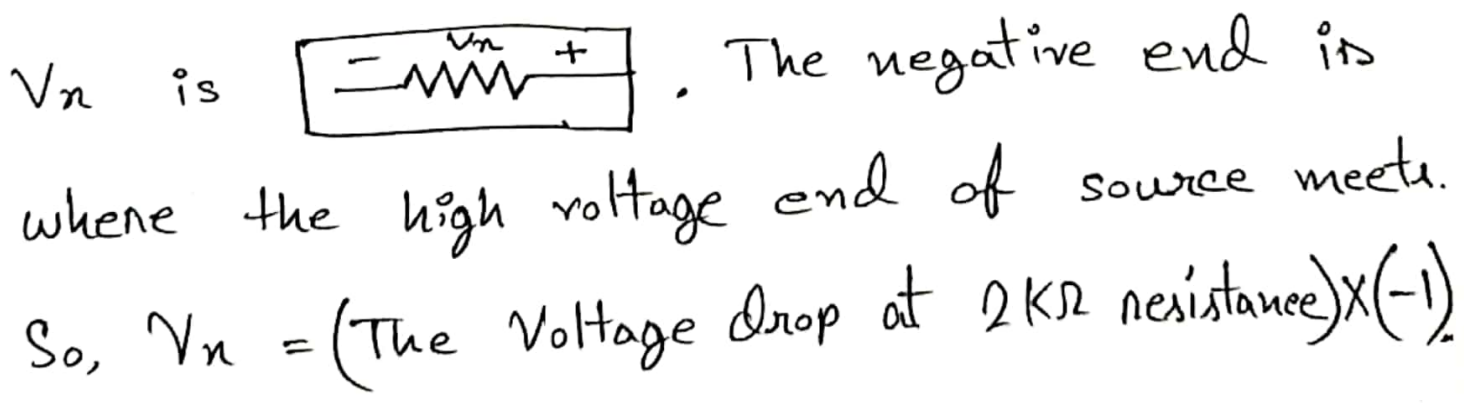 Vx is - Vx + . The negative end is
where the high voltage end of source meets.
So, Vx = (The Voltage drop at 2KΩ resistance)x(-1).